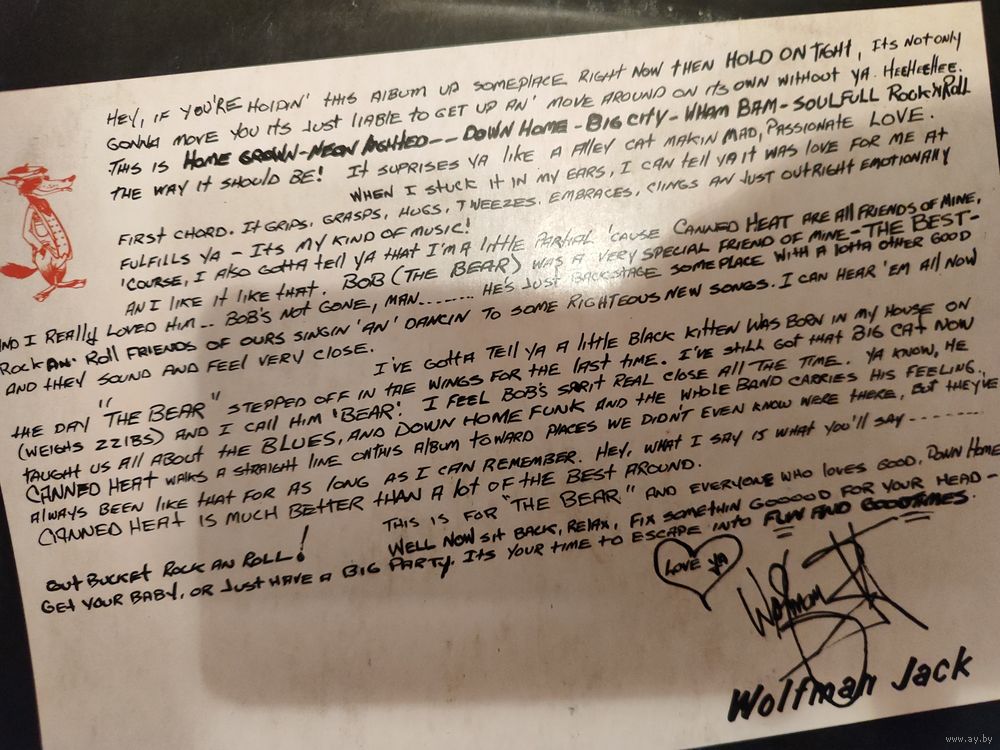 HEY, IF YOU'RE HOLDIN' THIS ALBUM UP SOMEPLACE RIGHT NOW THEN HOLD ON TIGHT, ITS NOT ONLY
GONNA MOVE YOU ITS JUST LIABLE TO GET UP AN' MOVE AROUND ON ITS OWN WITHOUT YA. HEEHEEHEE.
THIS IS HOME GROWN-NEON LIGHTED-- DOWN HOME-BIG CITY-WHAM BAM-SOULFULL ROCK'N'ROLL
THE WAY IT SHOULD BE! IT SUPRISES YA LIKE A ALLEY CAT MAKIN MAD, PASSIONATE LOVE.
WHEN I STUCK IT IN MY EARS, I CAN TELL YA IT WAS LOVE FOR ME AT
FIRST CHORD. IT GRIPS, GRASPS, HUGS, TWEEZES, EMBRACES, CLINGS AN JUST OUTRIGHT EMOTIONALLY
FULFILLS YA - ITS MY KIND OF MUSIC!
'COURSE, I ALSO GOTTA TELL YA THAT I'M A LITTLE PARTIAL 'CAUSE CANNED HEAT ARE ALL FRIENDS OF MINE,
AN I LIKE IT LIKE THAT. BOB (THE BEAR) WAS A VERY SPECIAL FRIEND OF MINE-THE BEST-
AND I REALLY LOVED HIM.. BOB'S NOT GONE, MAN........ HE'S JUST BACKSTAGE SOMEPLACE WITH A LOTTA OTHER GOOD
ROCK AN' ROLL FRIENDS OF OURS SINGIN 'AN' DANCIN TO SOME RIGHTEOUS NEW SONGS. I CAN HEAR 'EM ALL NOW
AND THEY SOUND AND FEEL VERY CLOSE.
I'VE GOTTA TELL YA A LITTLE BLACK KITTEN WAS BORN IN MY HOUSE ON
THE DAY "THE BEAR" STEPPED OFF IN THE WINGS FOR THE LAST TIME. I'VE STILL GOT THAT BIG CAT NOW
(WEIGHS 22LBS) AND I CALL HIM 'BEAR'. I FEEL BOB'S SPIRIT REAL CLOSE ALL THE TIME. YA KNOW, HE
TAUGHT US ALL ABOUT THE BLUES, AND DOWN HOME FUNK AND THE WHOLE BAND CARRIES HIS FEELING.
CANNED HEAT WALKS A STRAIGHT LINE ON THIS ALBUM TOWARD PLACES WE DIDN'T EVEN KNOW WERE THERE, BUT THEY'VE
ALWAYS BEEN LIKE THAT FOR AS LONG AS I CAN REMEMBER. HEY, WHAT I SAY IS WHAT YOU'LL SAY ---------
CANNED HEAT IS MUCH BETTER THAN A LOT OF THE BEST AROUND.
THIS IS FOR "THE BEAR" AND EVERYONE WHO LOVES GOOD, DOWN HOME
GUTBUCKET ROCK AN ROLL!
WELL NOW SIT BACK, RELAX, FIX SOMETHIN GOOOOD FOR YOUR HEAD-
GET YOUR BABY, OR JUST HAVE A BIG PARTY. ITS YOUR TIME TO ESCAPE INTO FUN AND GOODTIMES.
LOVE YA
Wolfman Jack
Wolfman Jack
www.ay.by